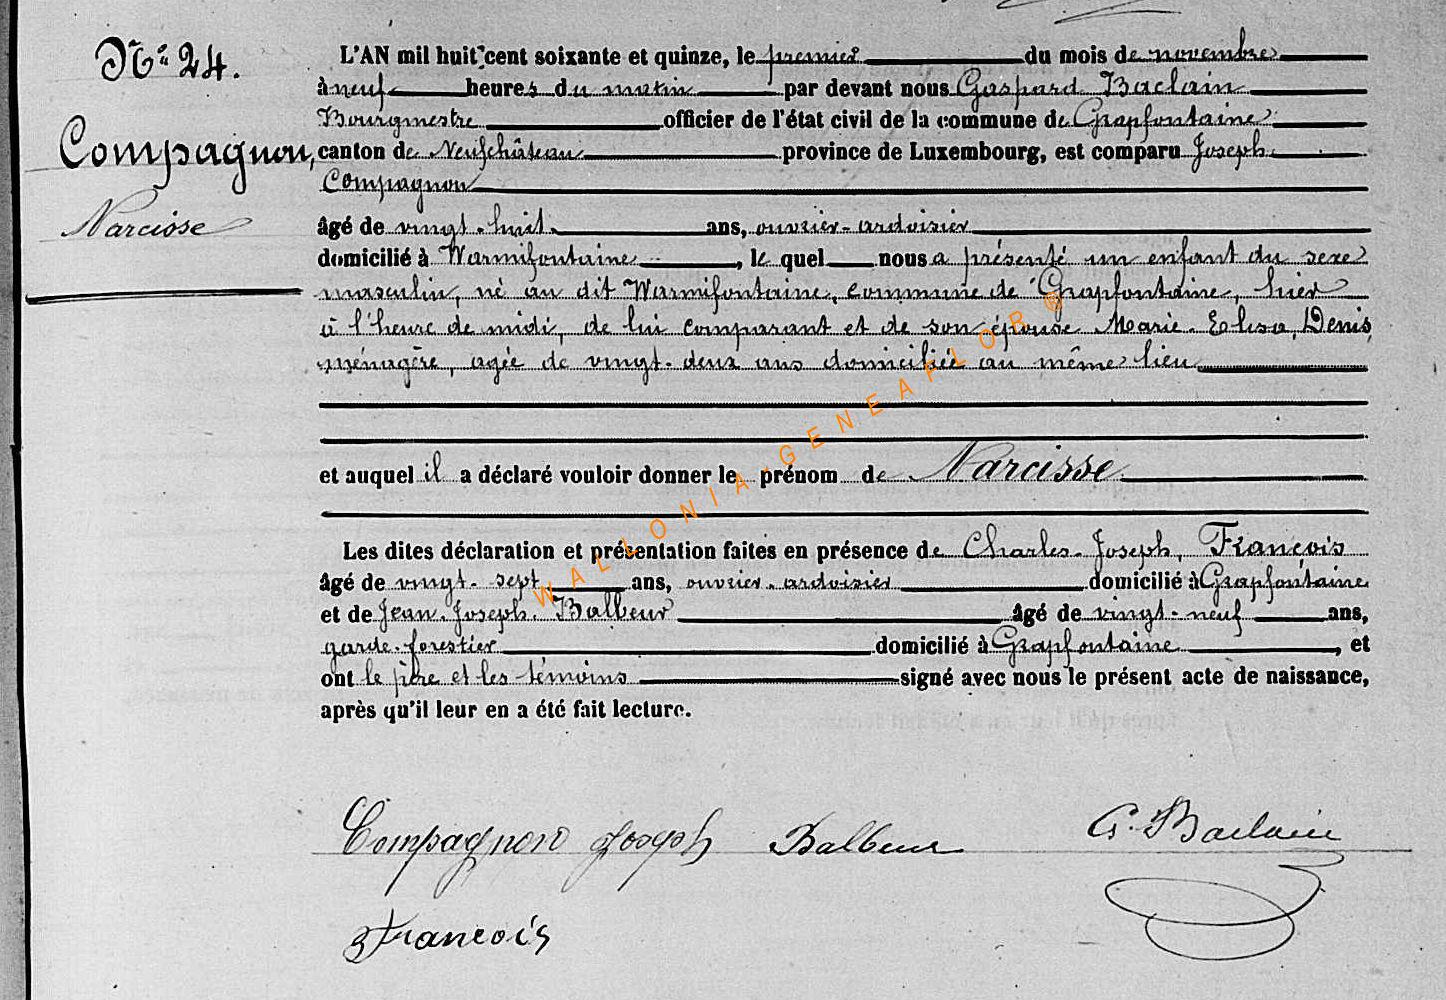 N° 24.
Compagnon,
Narcisse
L'AN mil huit cent soixante et quinze, le premier du mois de novembre
à neuf heures du matin par devant nous Gaspard Baclain
Bourgmestre officier de l'état civil de la commune de Grapfontaine
canton de Neufchâteau province de Luxembourg, est comparu Joseph
Compagnon
âgé de vingt-huit ans, ouvrier-ardoisier
domicilié à Warmifontaine, le quel nous a présenté un enfant du sexe
masculin, né au dit Warmifontaine, commune de Grapfontaine, hier
à l'heure de midi, de lui comparant et de son épouse Marie-Elisa, Denis,
ménagère, agée de vingt-deux ans domiciliée au même lieu
et auquel il a déclaré vouloir donner le prénom de Narcisse
Les dites déclaration et présentation faites en présence de Charles-Joseph, François
âgé de vingt-sept ans, ouvrier-ardoisier domicilié à Grapfontaine
et de Jean-Joseph Balbeur âgé de vingt-neuf ans,
garde-forestier domicilié à Grapfontaine, et
ont le père et les témoins signé avec nous le présent acte de naissance,
après qu'il leur en a été fait lecture.
WALLONIA-GENEAFLOR®
Compagnon Joseph Balbeur G. Baclain
François